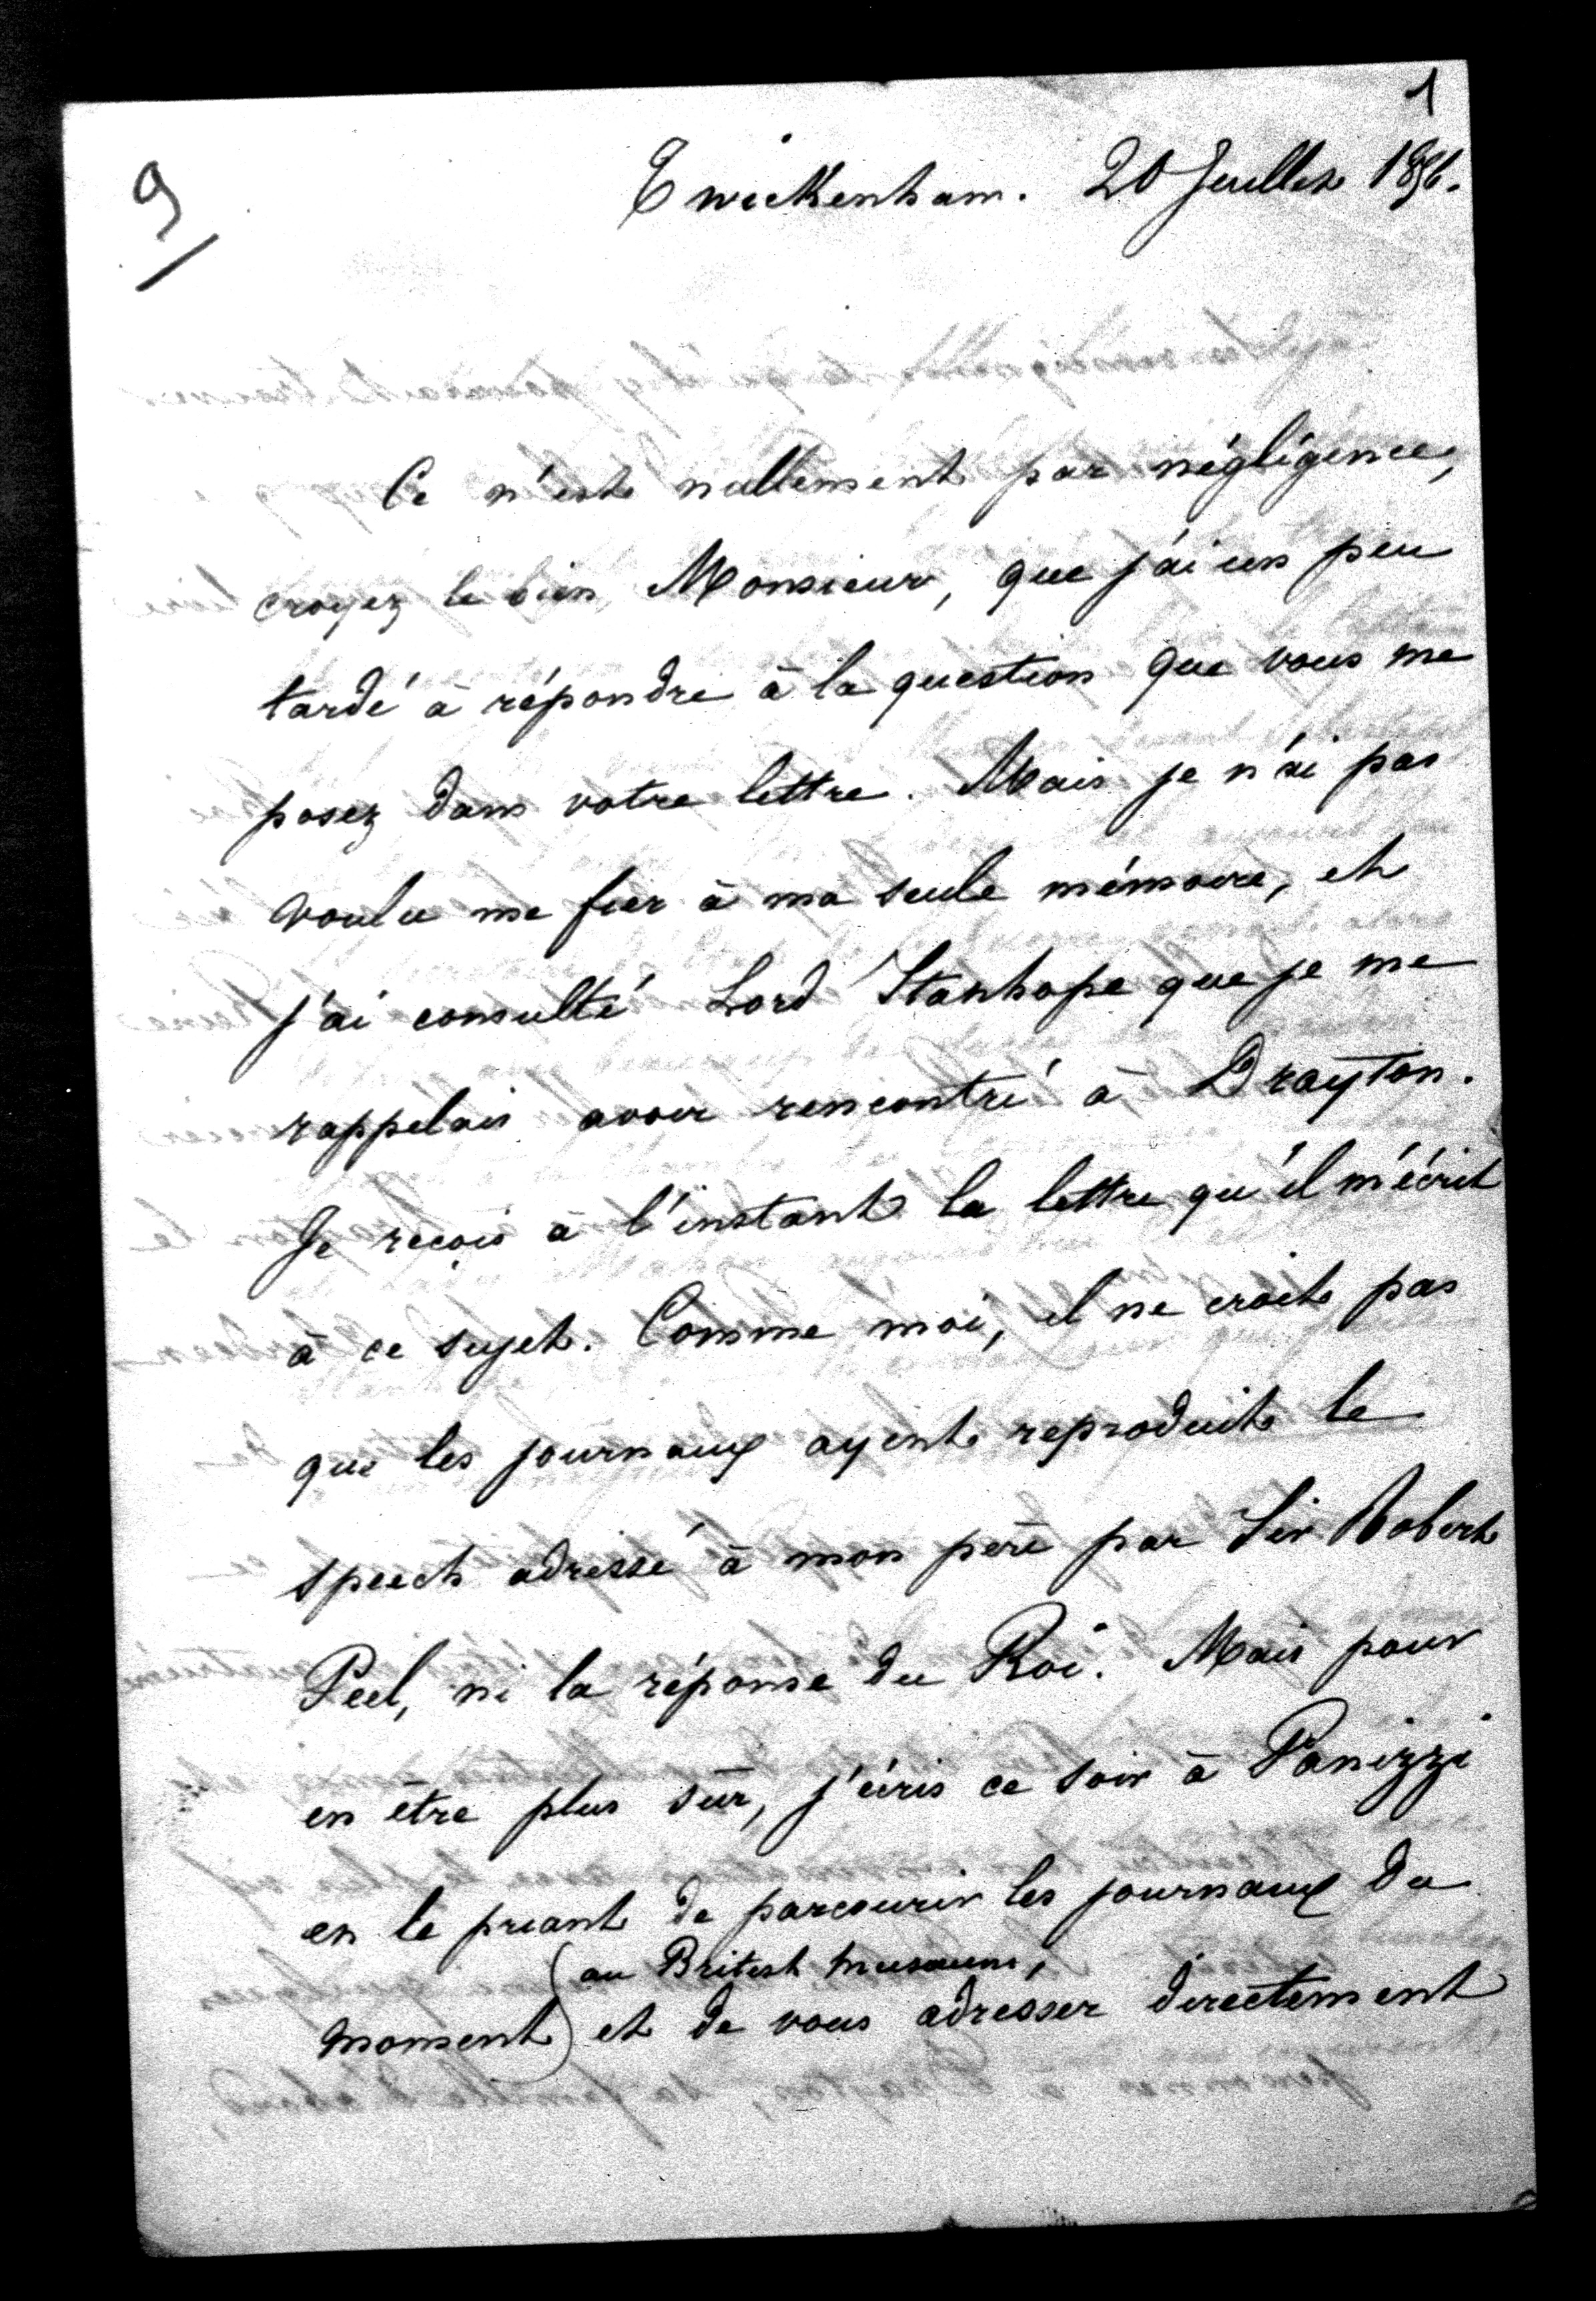 1
9
Twickenham. 20 Juillet 1856.
Ce n'est nullement par négligence,
croyez le bien Monsieur, que j'ai un peu
tardé à répondre à la question que vous me
posez dans votre lettre. Mais je n'ai pas
voulu me fier à ma seule mémoire, et
j'ai consulté Lord Stanhope que je me
rappelais avoir rencontré à Drayton.
Je reçois à l'instant la lettre qu'il m'écrit
à ce sujet. Comme moi, il ne croit pas
que les journaux ayent reproduit le
speech adressé à mon père par Sir Robert
Peel, ni la réponse du Roi. Mais pour
en être plus sûr, j'écris ce soir à Panizzi
en le priant de parcourir les journaux du
(au British Museum,
moment) et de vous adresser directement